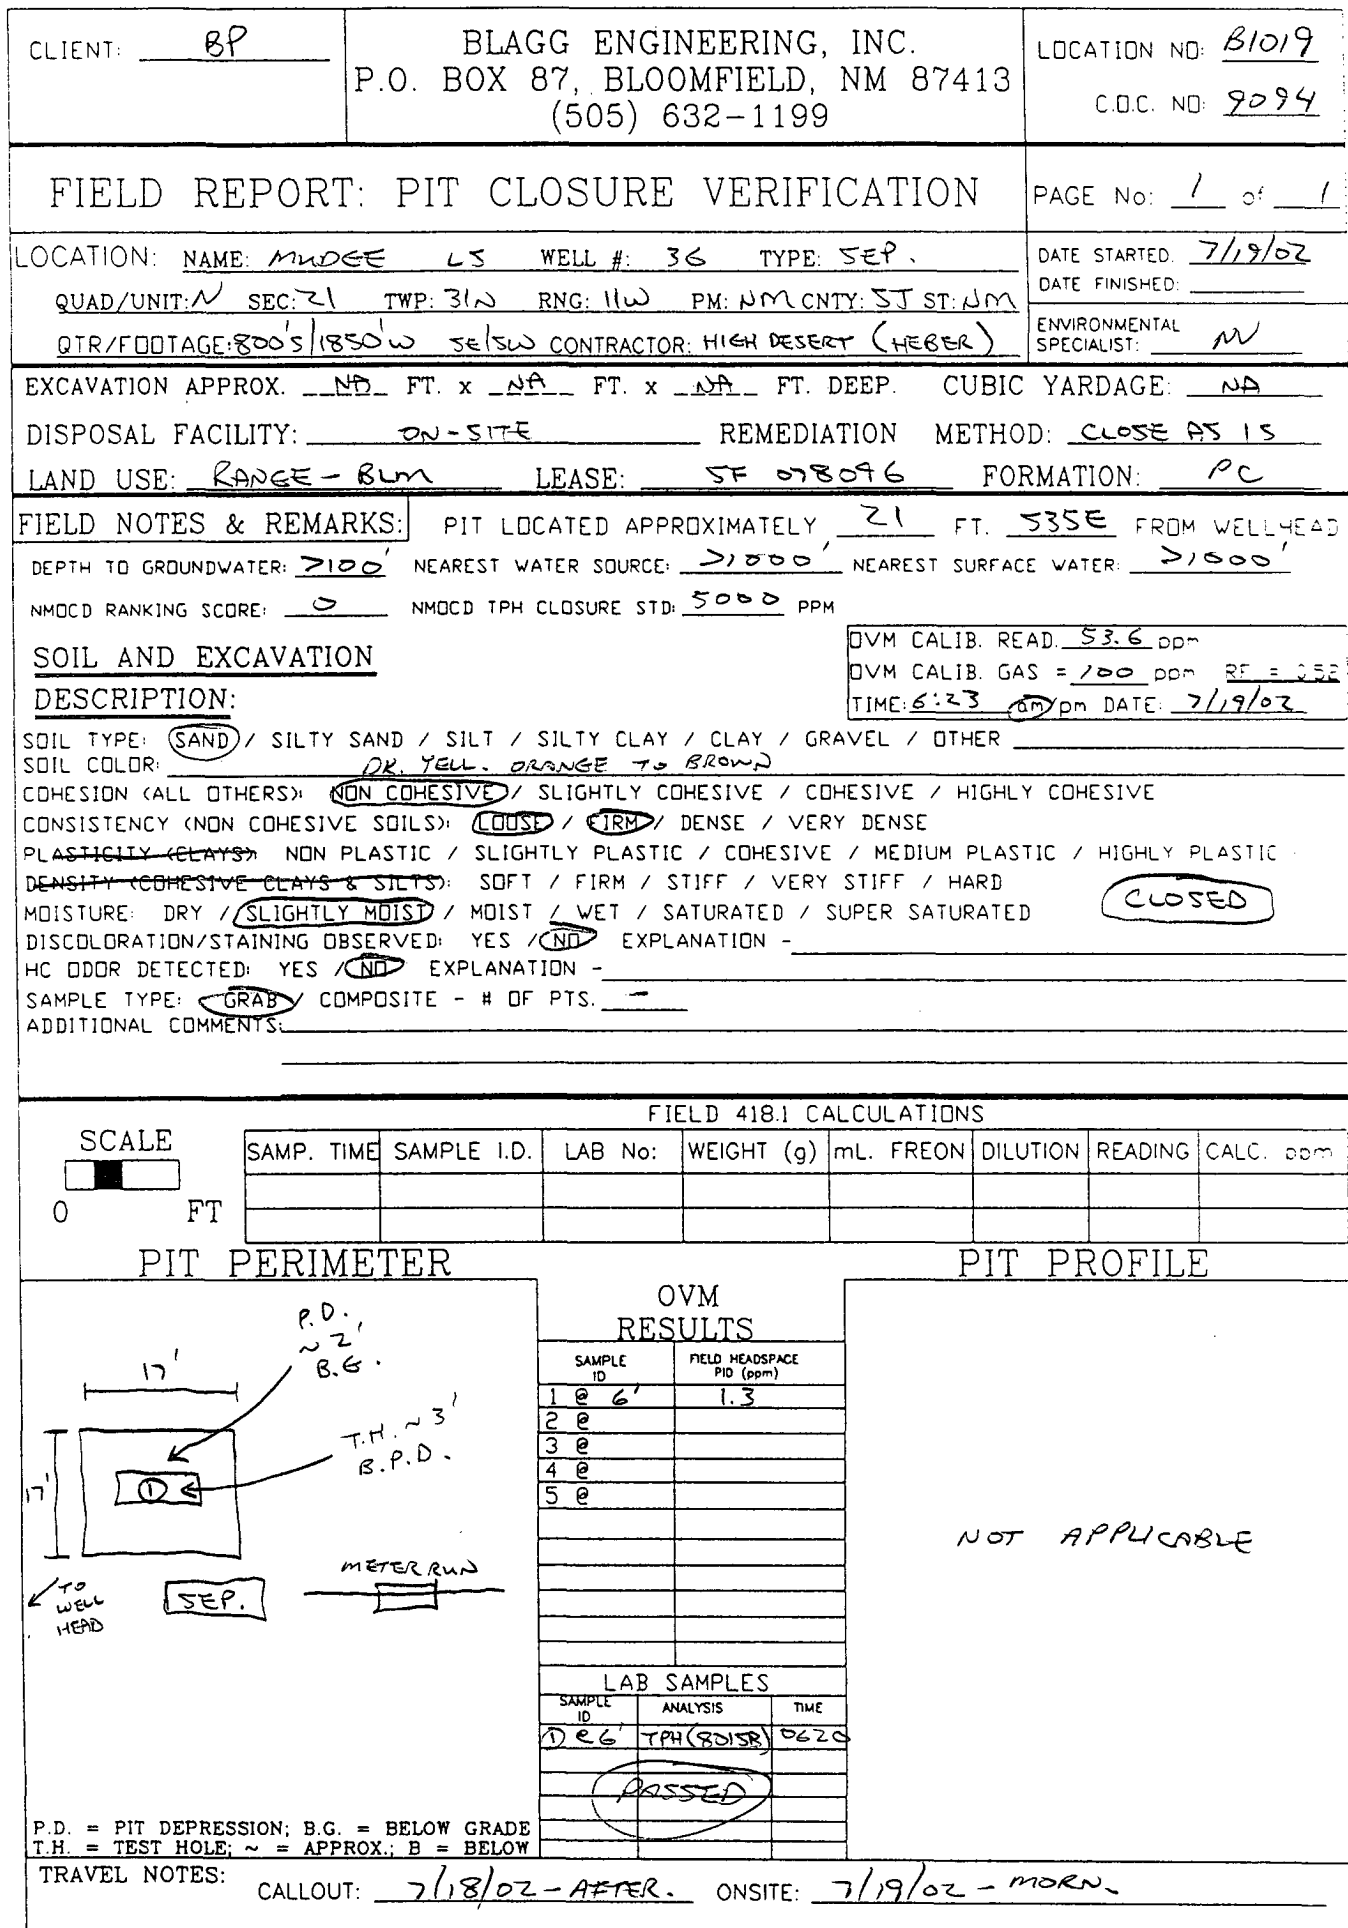 CLIENT: BP
BLAGG ENGINEERING, INC.
P.O. BOX 87, BLOOMFIELD, NM 87413
(505) 632-1199
LOCATION NO: B1019
C.O.C. NO: 9094
FIELD REPORT: PIT CLOSURE VERIFICATION
PAGE No: 1 of 1
LOCATION: NAME: MUDGE LS WELL #: 36 TYPE: SEP.
QUAD/UNIT: N SEC: 21 TWP: 31N RNG: 11W PM: NM CNTY: SJ ST: NM
QTR/FOOTAGE: 800'S/1850'W SE/SW CONTRACTOR: HIGH DESERT (HEBER)
DATE STARTED: 7/19/02
DATE FINISHED:
ENVIRONMENTAL
SPECIALIST: NV
EXCAVATION APPROX. NA FT. x NA FT. x NA FT. DEEP. CUBIC YARDAGE: NA
DISPOSAL FACILITY: ON-SITE REMEDIATION METHOD: CLOSE AS IS
LAND USE: RANGE - BLM LEASE: SF 078096 FORMATION: PC
FIELD NOTES & REMARKS: PIT LOCATED APPROXIMATELY 21 FT. S35E FROM WELLHEAD
DEPTH TO GROUNDWATER: >100' NEAREST WATER SOURCE: >1000' NEAREST SURFACE WATER: >1000'
NMOCD RANKING SCORE: 0 NMOCD TPH CLOSURE STD: 5000 PPM
OVM CALIB. READ. 53.6 ppm
OVM CALIB. GAS = 100 ppm RF = 0.52
TIME: 6:23 am/pm DATE: 7/19/02
SOIL AND EXCAVATION
DESCRIPTION:
SOIL TYPE: SAND / SILTY SAND / SILT / SILTY CLAY / CLAY / GRAVEL / OTHER
SOIL COLOR: DK. YELL. ORANGE TO BROWN
COHESION (ALL OTHERS): NON COHESIVE / SLIGHTLY COHESIVE / COHESIVE / HIGHLY COHESIVE
CONSISTENCY (NON COHESIVE SOILS): LOOSE / FIRM / DENSE / VERY DENSE
PLASTICITY (CLAYS): NON PLASTIC / SLIGHTLY PLASTIC / COHESIVE / MEDIUM PLASTIC / HIGHLY PLASTIC
DENSITY (COHESIVE CLAYS & SILTS): SOFT / FIRM / STIFF / VERY STIFF / HARD
MOISTURE: DRY / SLIGHTLY MOIST / MOIST / WET / SATURATED / SUPER SATURATED
CLOSED
DISCOLORATION/STAINING OBSERVED: YES / NO EXPLANATION -
HC ODOR DETECTED: YES / NO EXPLANATION -
SAMPLE TYPE: GRAB / COMPOSITE - # OF PTS. -
ADDITIONAL COMMENTS:
FIELD 418.1 CALCULATIONS
SCALE
0 FT
SAMP. TIME SAMPLE I.D. LAB No: WEIGHT (g) mL. FREON DILUTION READING CALC. ppm
PIT PERIMETER
PIT PROFILE
P.D.
~ 2'
B.G.
17'
T.H. ~ 3'
B.P.D.
17'
1
TO
WELL
HEAD
SEP.
METER RUN
OVM
RESULTS
SAMPLE ID FIELD HEADSPACE PID (ppm)
1 @ 6' 1.3
2 @
3 @
4 @
5 @
NOT APPLICABLE
LAB SAMPLES
SAMPLE ID ANALYSIS TIME
① @ 6' TPH (8015B) 0620
PASSED
P.D. = PIT DEPRESSION; B.G. = BELOW GRADE
T.H. = TEST HOLE; ~ = APPROX.; B = BELOW
TRAVEL NOTES: CALLOUT: 7/18/02 - AFTER. ONSITE: 7/19/02 - MORN.